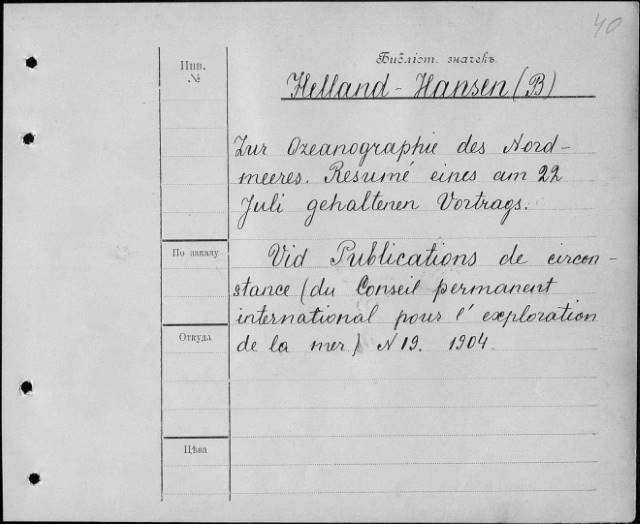 40
Библіот. значекъ
Инв.
№
Helland-Hansen (B)
Zur Ozeanographie des Nord-
meeres. Resumé eines am 22
Juli gehaltenen Vortrags.
По заказу
Vid Publications de circon-
stance (du Conseil permanent
international pour l'exploration
Откуда
de la mer) N 19. 1904.
Цѣна